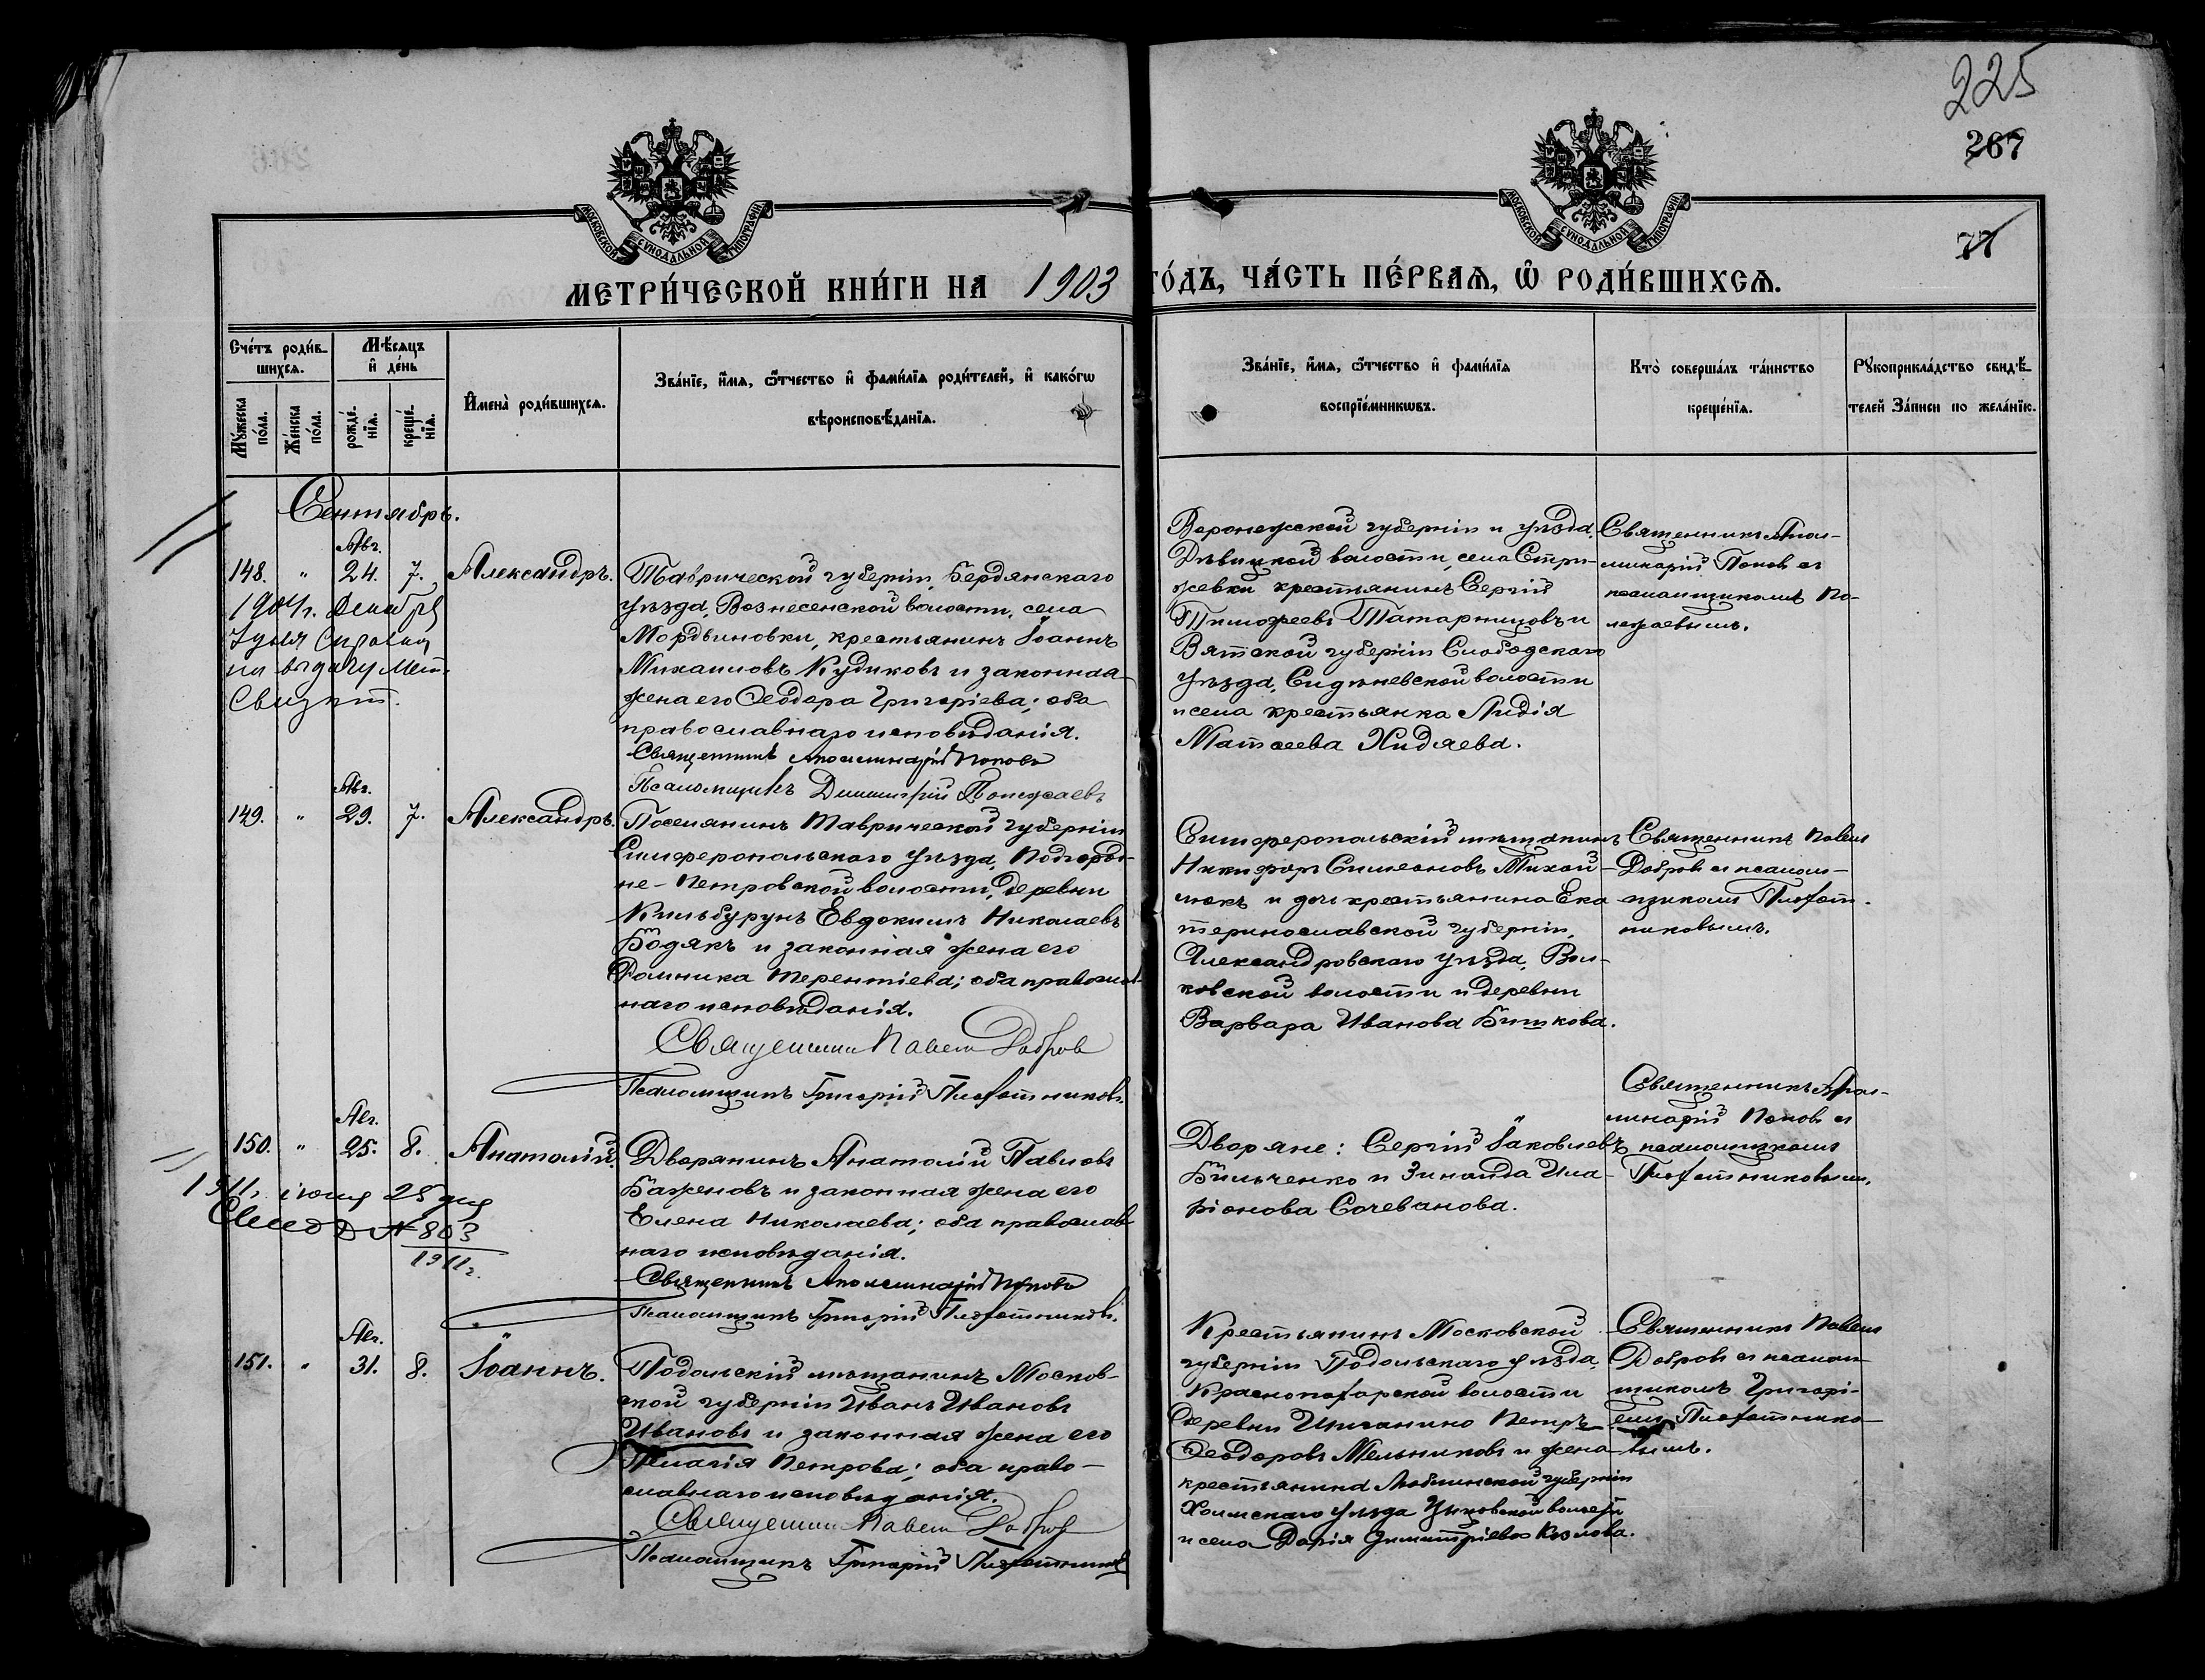 225
267
77
МОСКОВСКОЙ СѴНОДАЛЬНОЙ ТИПОГРАФІИ
МОСКОВСКОЙ СѴНОДАЛЬНОЙ ТИПОГРАФІИ
МЕТРИ́ЧЕСКОЙ КНИ́ГИ НА 1903 ГО́ДЪ, ЧА́СТЬ ПЕ́РВАѦ, Ѽ РОДИ́ВШИХСѦ.
Сче́тъ роди́в-
шихсѧ.
Мѣ́сѧцъ
и҆ де́нь
Мꙋ́жеска
по́ла.
Же́нска
по́ла.
рожде́-
нїѧ.
креще́-
нїѧ.
И҆мена̀ роди́вшихсѧ.
Зва́нїе, и҆́мѧ, ѻ҆́тчество и҆ фами́лїѧ роди́телей, и҆ како́гѡ
вѣроисповѣ́данїѧ.
Зва́нїе, и҆́мѧ, ѻ҆́тчество и҆ фами́лїѧ
воспрїе́мникѡвъ.
Кто̀ соверша́лъ та́инство
креще́нїѧ.
Рꙋкоприкла́дство свидѣ́-
телей За́писи по жела́нїю.
Сентябрь.
Авг.
148. " 24. 7. Александръ.
1904г. Декабря
7 дня
на выдачу мет.
Таврической губерніи, Бердянскаго
уѣзда, Вознесенской волости, села
Мордвиновки, крестьянинъ Іоаннъ
Михаиловъ Кудиковъ и законная
жена его Ѳеодора Григоріева; оба
православнаго исповѣданія.
Священникъ Аполлинарій Поповъ
Псаломщикъ Димитрій Полежаевъ
Воронежской губерніи и уѣзда,
Дѣвицкой волости, села Стри-
жевки крестьянинъ Сергій
Тимоѳеевъ Татаринцовъ и
Вятской губерніи Слободскаго
уѣзда, волости
и села крестьянка Лидія
Матѳеева Хидяева.
Священникъ Апол-
линарій Поповъ съ
псаломщикомъ По-
лежаевымъ.
Авг.
149. " 29. 7. Александръ.
Поселянинъ Таврической губерніи
Симферопольскаго уѣзда, Подгород-
не-Петровской волости, деревни
Кильбурунъ Евдокимъ Николаевъ
Бодякъ и законная жена его
Домника Терентіева; оба православ-
наго исповѣданія.
Священникъ Павелъ Добровъ
Псаломщикъ Григорій Плотниковъ.
Симферопольскій мѣщанинъ
Никифоръ Симеоновъ Михай-
люкъ и дочь крестьянина Ека-
теринославской губерніи,
Александровскаго уѣзда, Вол-
ковской волости и деревни
Варвара Иванова Бишкова.
Священникъ Павелъ
Добровъ съ псалом-
щикомъ Плот-
никовымъ.
Авг.
150. " 25. 8. Анатолій.
1911г. іюня 25 дня
№ 803
1911г.
Дворянинъ Анатолій Павловъ
Баженовъ и законная жена его
Елена Николаева; оба православ-
наго исповѣданія.
Священникъ Аполлинарій Поповъ
Псаломщикъ Григорій Плотниковъ.
Дворяне: Сергій Іаковлевъ
Бильченко и Зинаида Ила-
ріонова Сочеванова.
Священникъ Апол-
линарій Поповъ съ
псаломщикомъ
Плотниковымъ.
Авг.
151. " 31. 8. Іоаннъ.
Подольскій мѣщанинъ Москов-
ской губерніи Иванъ Ивановъ
Ивановъ и законная жена его
Пелагія Петрова; оба право-
славнаго исповѣданія.
Священникъ Павелъ Добровъ
Псаломщикъ Григорій Плотниковъ
Крестьянинъ Московской
губерніи Подольскаго уѣзда,
Краснопахарской волости
деревни Шиганино Петръ
Ѳеодоровъ Мельниковъ и жена
крестьянина Люблинской губерніи
Холмскаго уѣзда волости
и села Дарія Димитріева Козлова.
Священникъ Павелъ
Добровъ съ псалом-
щикомъ Григорі-
емъ Плотнико-
вымъ.